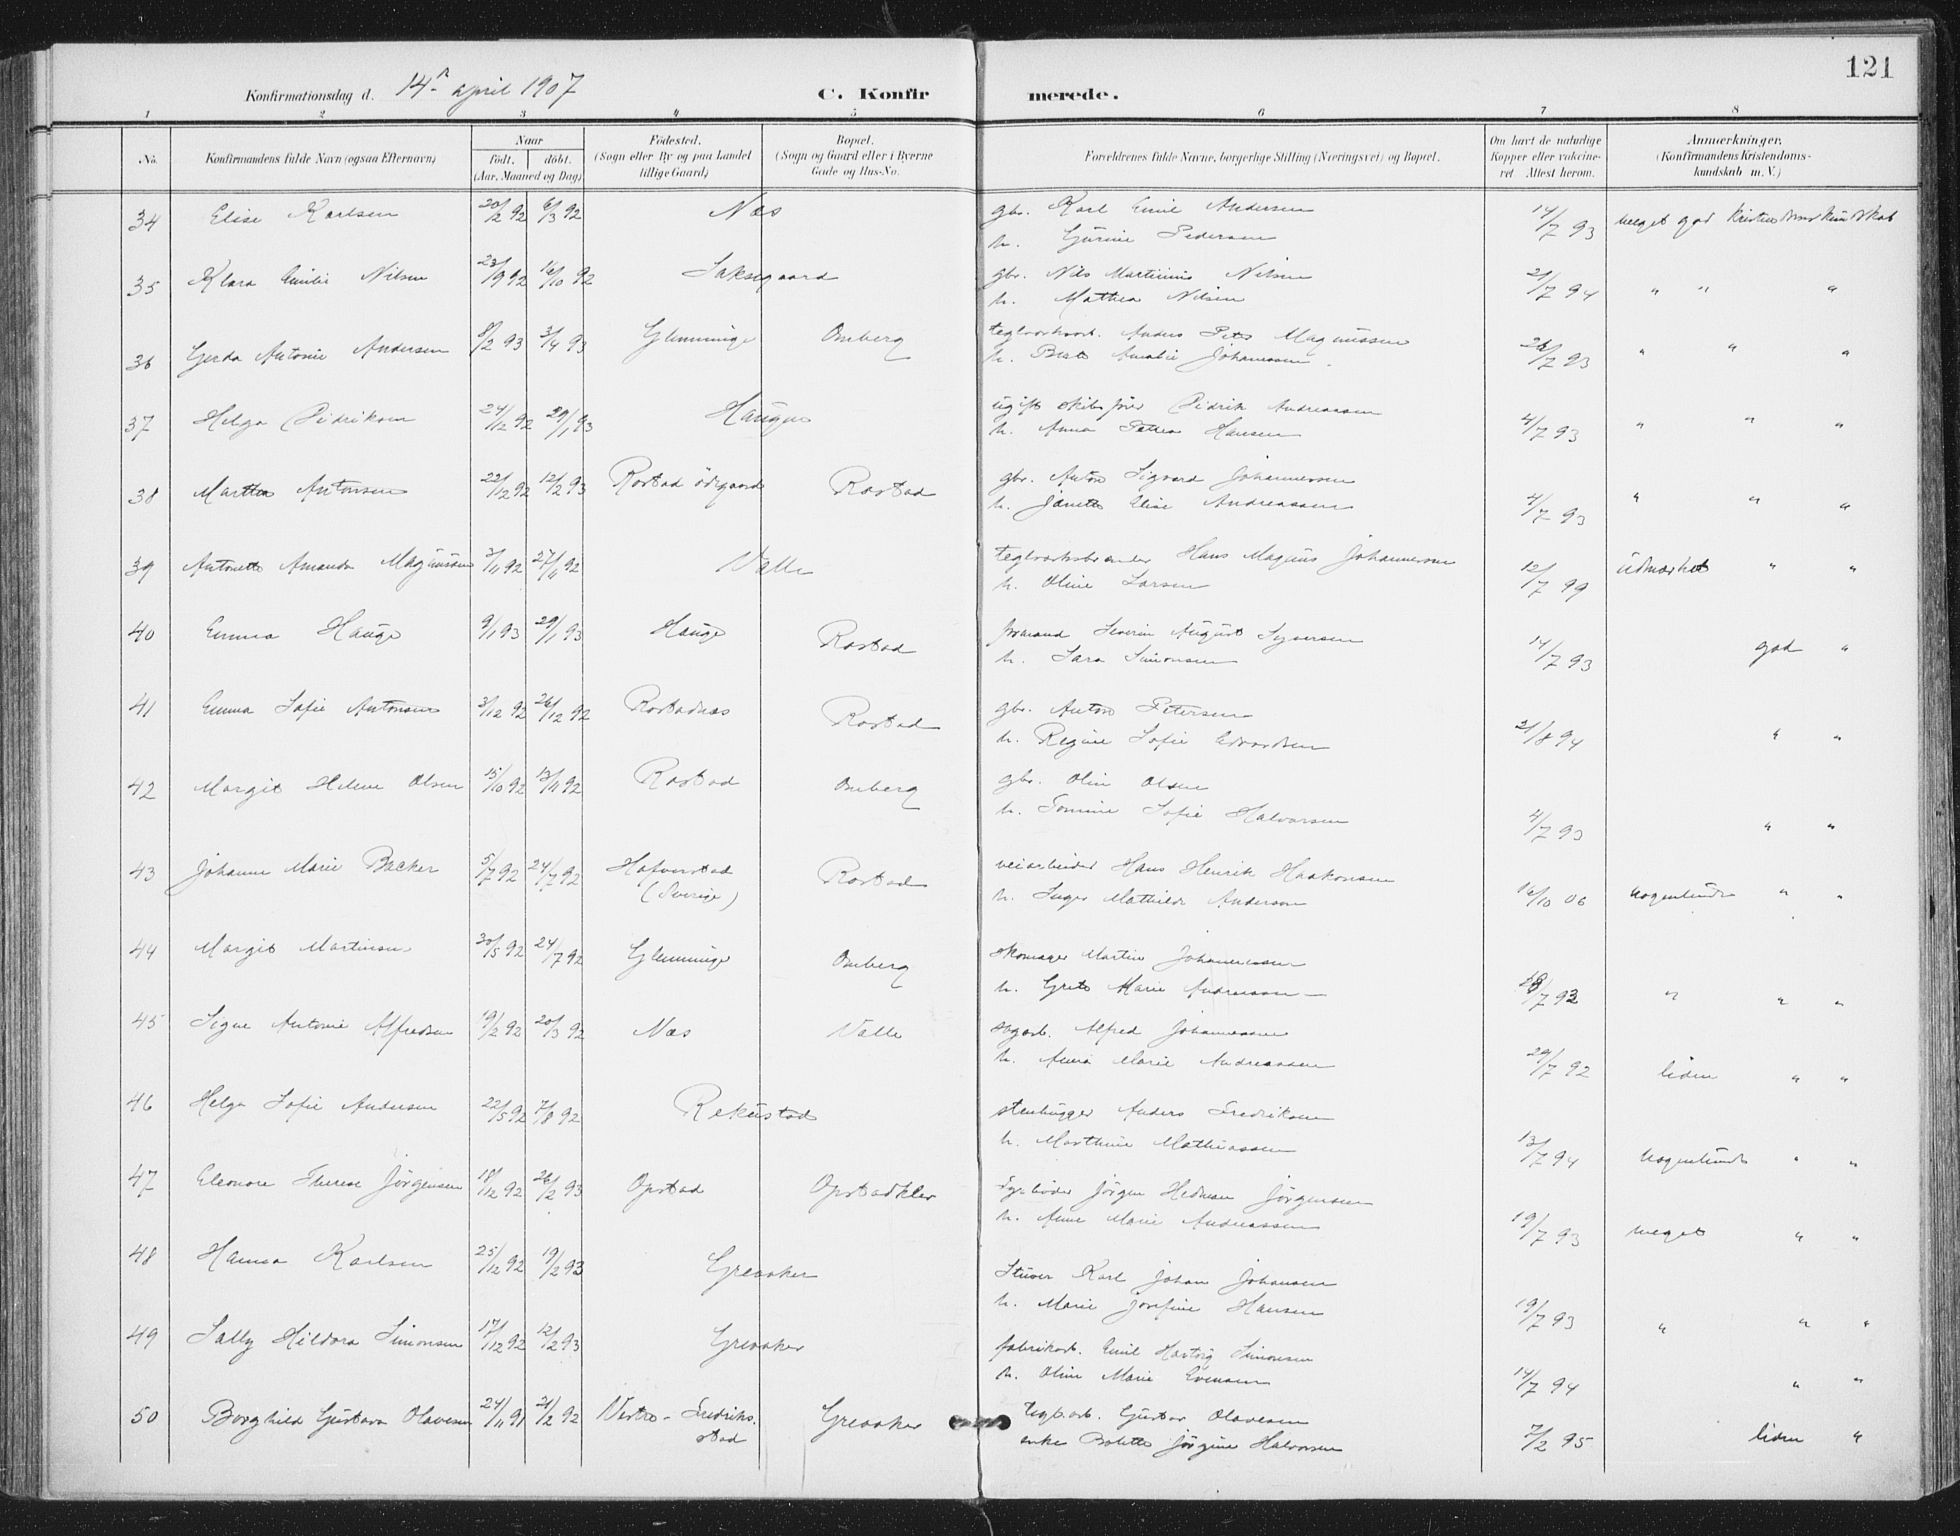 121
Konfirmationsdag d. 14de april 1907 C. Konfirmerede.
1 2 3 4 5 6 7 8
No. Konfirmandens fulde Navn (ogsaa Efternavn) Naar født. døbt. (Aar, Maaned og Dag) Fødested. (Sogn eller By og paa Landet tillige Gaard) Bopæl. (Sogn og Gaard eller i Byerne Gade og Hus-No. Forældrenes fulde Navne, borgerlige Stilling (Næringsvei) og Bopæl. Om havt de naturlige Kopper eller vakcineret Attest herom. Anmærkninger, (Konfirmandens Kristendomskundskab m. V.)
34 Elise Karlsen 20/2 92 6/3 92 Næs gbr. Karl Emil Andersen 14/7 93 meget god kristendomskundskab
h. Gurine Pedersen
35 Klara Emilie Nilsen 23/9 92 16/10 92 Saksegaard gbr. Nils Martinius Nilsen 21/7 94 " " "
h. Mathea Nilsen
36 Gerda Antonie Andersen 8/2 93 3/4 93 Glemminge Omberg teglværksarb. Anders Peter Magnussen 26/7 93 " " "
h. Berte Amalie Johannessen
37 Helga Didriksen 24/12 92 29/1 93 Haugen ugift skibsfører Didrik Andreassen 4/7 93 " " "
h. Anna Petrea Hansen
38 Marthea Antonsen 22/12 92 12/2 93 Rostad ødegaard Rostad gbr. Anton Sigvard Johannessen 4/7 93 " " "
h. Janette Elise Andreassen
39 Antonette Amanda Magnussen 3/11 92 27/11 92 Valle teglværksbrænder Hans Magnus Johannessen 12/7 99 udmærket " "
h. Oline Larsen
40 Emma Hauge 9/1 93 29/1 93 Hauge Rostad formand Severin August Syversen 14/7 93 god "
h. Sara Simonsen
41 Emma Sofie Antonsen 3/12 92 26/12 92 Rostadnæs Rostad gbr. Anton Petersen 21/8 94 " "
h. Regine Sofie Edvardsen
42 Margit Helene Olsen 15/10 92 13/11 92 Rostad Omberg gbr. Olin Olsen 4/7 93 " "
h. Tomine Sofie Halvorsen
43 Johanne Marie Backer 5/7 92 24/7 92 Hafverstad Rostad veiarbeider Hans Henrik Haakonsen 16/10 06 nogenlunde " "
(Sverige) h. Inger Mathilde Anderson
44 Margit Martinsen 30/5 92 24/7 92 Glemminge Omberg skomager Martin Johannessen 18/7 92 " " "
h. Grete Marie Andreassen
45 Signe Antonie Alfredsen 19/2 92 20/3 92 Næs Valle sagarb. Alfred Johannessen 29/7 92 liden " "
h. Anna Marie Andreassen
46 Helga Sofie Andersen 22/5 92 7/8 92 Rekustad stenhugger Anders Fredriksen 13/7 94 nogenlunde " "
h. Marthine Mathiassen
47 Eleonore Therese Jørgensen 18/12 92 26/2 93 Opstad Opstadklev fyrbøder Jørgen Jørgensen 19/7 93 meget " "
h. Anne Marie Andreassen
48 Hanna Karlsen 25/12 92 19/2 93 Greaaker Stuver Karl Johan Johansen 19/7 93 " " "
h. Marie Josefine Hansen
49 Sally Hildora Simonsen 17/12 92 12/2 93 Greaaker fabrikarb. Emil Hartvig Simonsen 14/7 94 " "
h. Oline Marie Evensen
50 Borghild Gustava Olavesen 24/11 91 21/2 92 Vestre-Fredriks- Greaaker teglarb. Gustav Olavesen 7/2 95 liden "
stad enke Bolette Jørgine Halvorsen